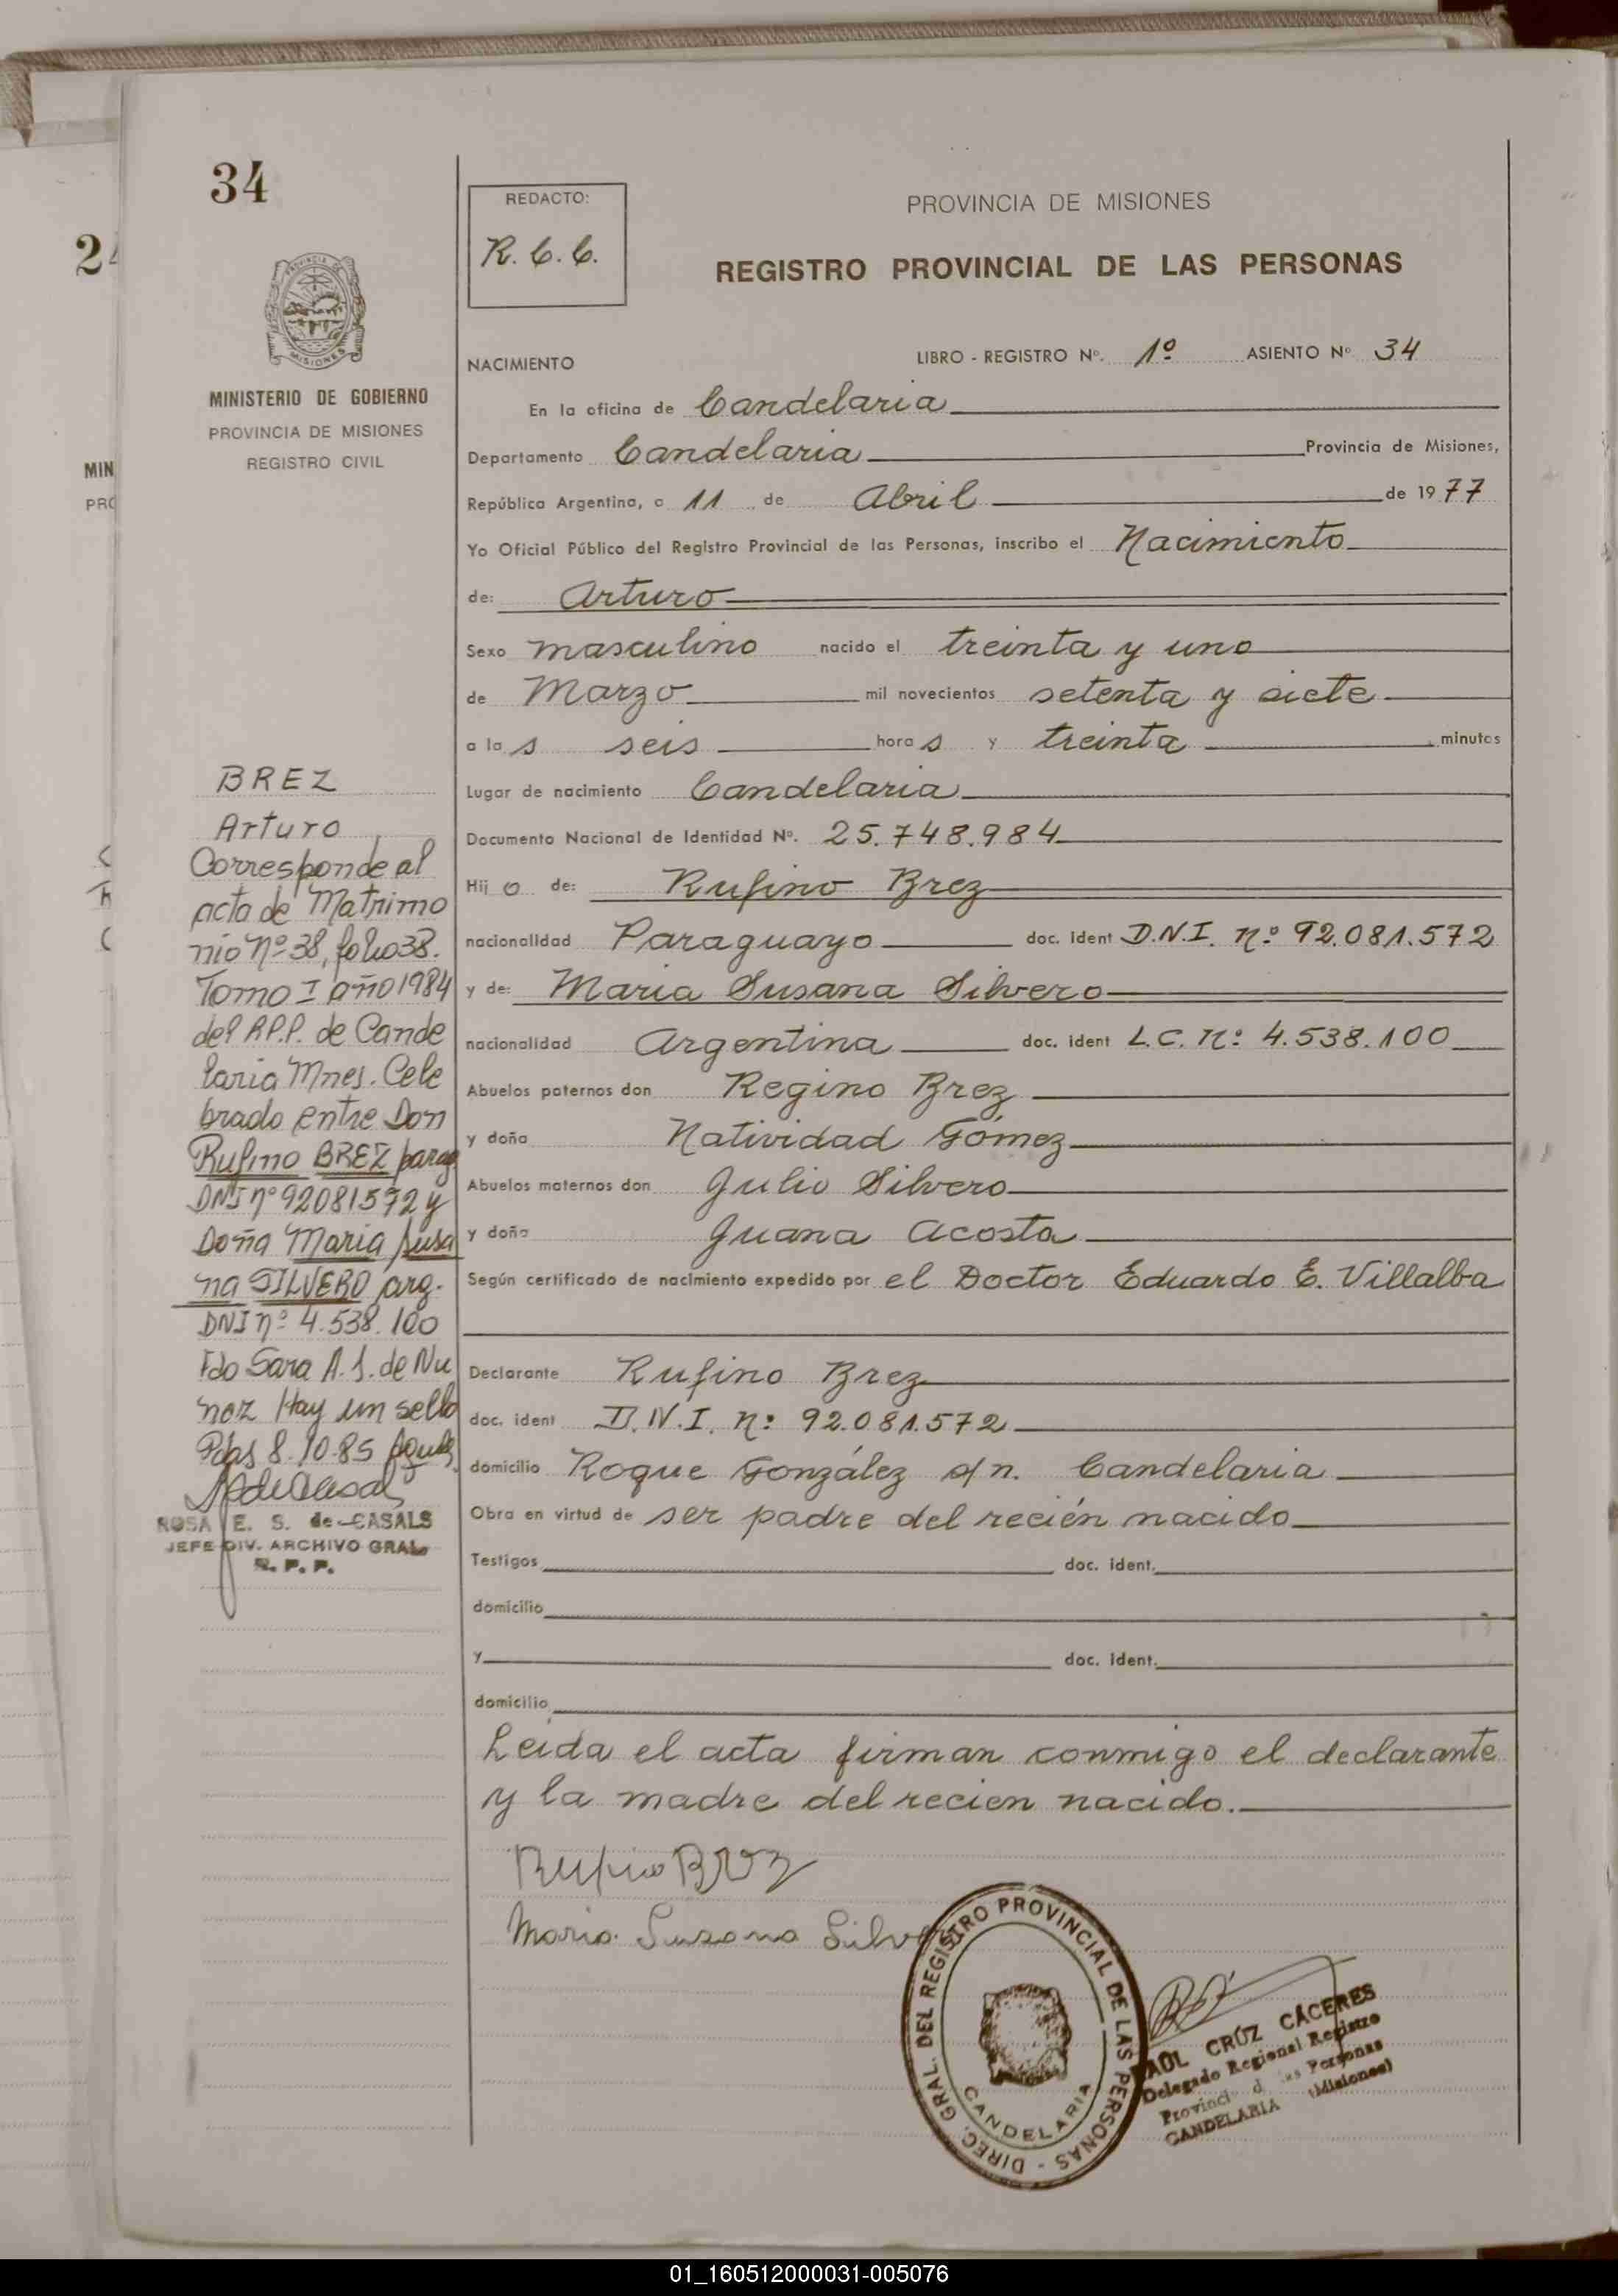 34
PROVINCIA DE MISIONES
MINISTERIO DE GOBIERNO
PROVINCIA DE MISIONES
REGISTRO CIVIL
BREZ
Arturo
Corresponde al
acta de Matrimo
nio Nº 38, folio 38.
Tomo I año 1984
del R.P.P. de Cande
laria Mnes. Cele
brado entre Don
Rufino BREZ parag
DNI nº 92081572 y
Doña Maria Susa
na SILVERO arg.
DNI nº 4.538.100
Fdo Sara A. S. de Nu
noz Hay un sello
Pdas 8.10.85
ROSA E. S. de CASALS
JEFE DIV. ARCHIVO GRAL.
R. P. P.
REDACTO:
R. C. C.
PROVINCIA DE MISIONES
REGISTRO PROVINCIAL DE LAS PERSONAS
NACIMIENTO LIBRO - REGISTRO Nº. 1º ASIENTO Nº 34
En la oficina de Candelaria
Departamento Candelaria Provincia de Misiones,
República Argentina, a 11 de Abril de 1977
Yo Oficial Público del Registro Provincial de las Personas, inscribo el Nacimiento
de: Arturo
Sexo masculino nacido el treinta y uno
de Marzo mil novecientos setenta y siete
a las seis horas y treinta minutos
Lugar de nacimiento Candelaria
Documento Nacional de Identidad Nº. 25.748.984
Hijo de: Rufino Brez
nacionalidad Paraguayo doc. ident D.N.I. nº 92.081.572
y de: Maria Susana Silvero
nacionalidad Argentina doc. ident L.C. nº: 4.538.100
Abuelos paternos don Regino Brez
y doña Natividad Gómez
Abuelos maternos don Julio Silvero
y doña Juana Acosta
Según certificado de nacimiento expedido por el Doctor Eduardo E. Villalba
Declarante Rufino Brez
doc. ident D.N.I. nº: 92.081.572
domicilio Roque González s/n. Candelaria
Obra en virtud de ser padre del recién nacido
Testigos doc. ident.
domicilio
y doc. ident.
domicilio
Leida el acta firman conmigo el declarante
y la madre del recien nacido.
Rufino Brez
Maria Susana Silvero
DIREC. GRAL. DEL REGISTRO PROVINCIAL DE LAS PERSONAS -
CANDELARIA
RAUL CRUZ CÁCERES
Delegado Regional Registro
Provincial de las Personas
CANDELARIA (Misiones)
24
MIN
PRO
01_160512000031-005076